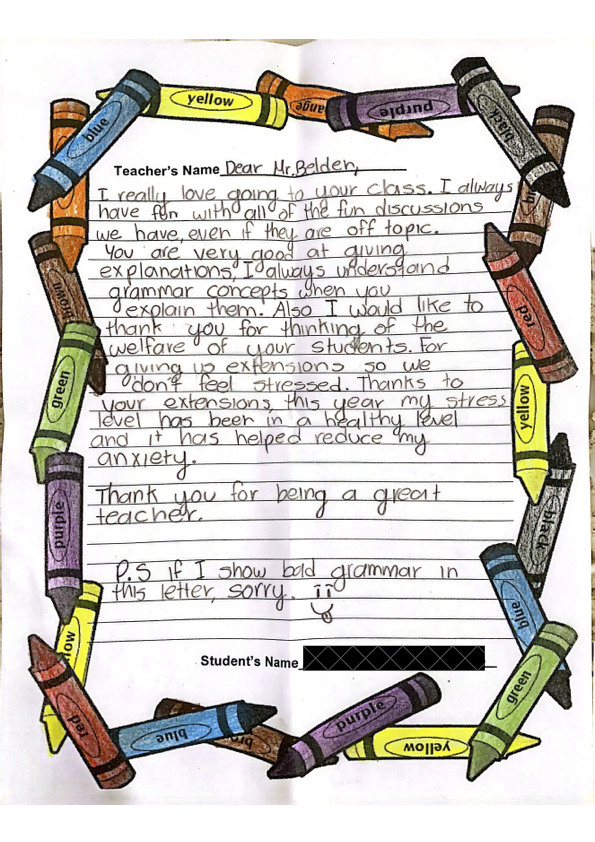 yellow
orange
purple
black
blue
Teacher's Name Dear Mr. Belden,
I really love going to your class. I always
have fun with all of the fun discussions
we have, even if they are off topic.
You are very good at giving
explanations, I always understand
grammar concepts when you
explain them. Also I would like to
thank you for thinking of the
welfare of your students. For
giving us extensions so we
don't feel stressed. Thanks to
your extensions, this year my stress
level has been in a healthy level
and it has helped reduce my
anxiety.
Thank you for being a great
teacher.
P.S If I show bad grammar in
this letter, sorry.
Student's Name
br
brown
red
green
yellow
purple
black
blue
llow
green
red
blue
bro
purple
yellow